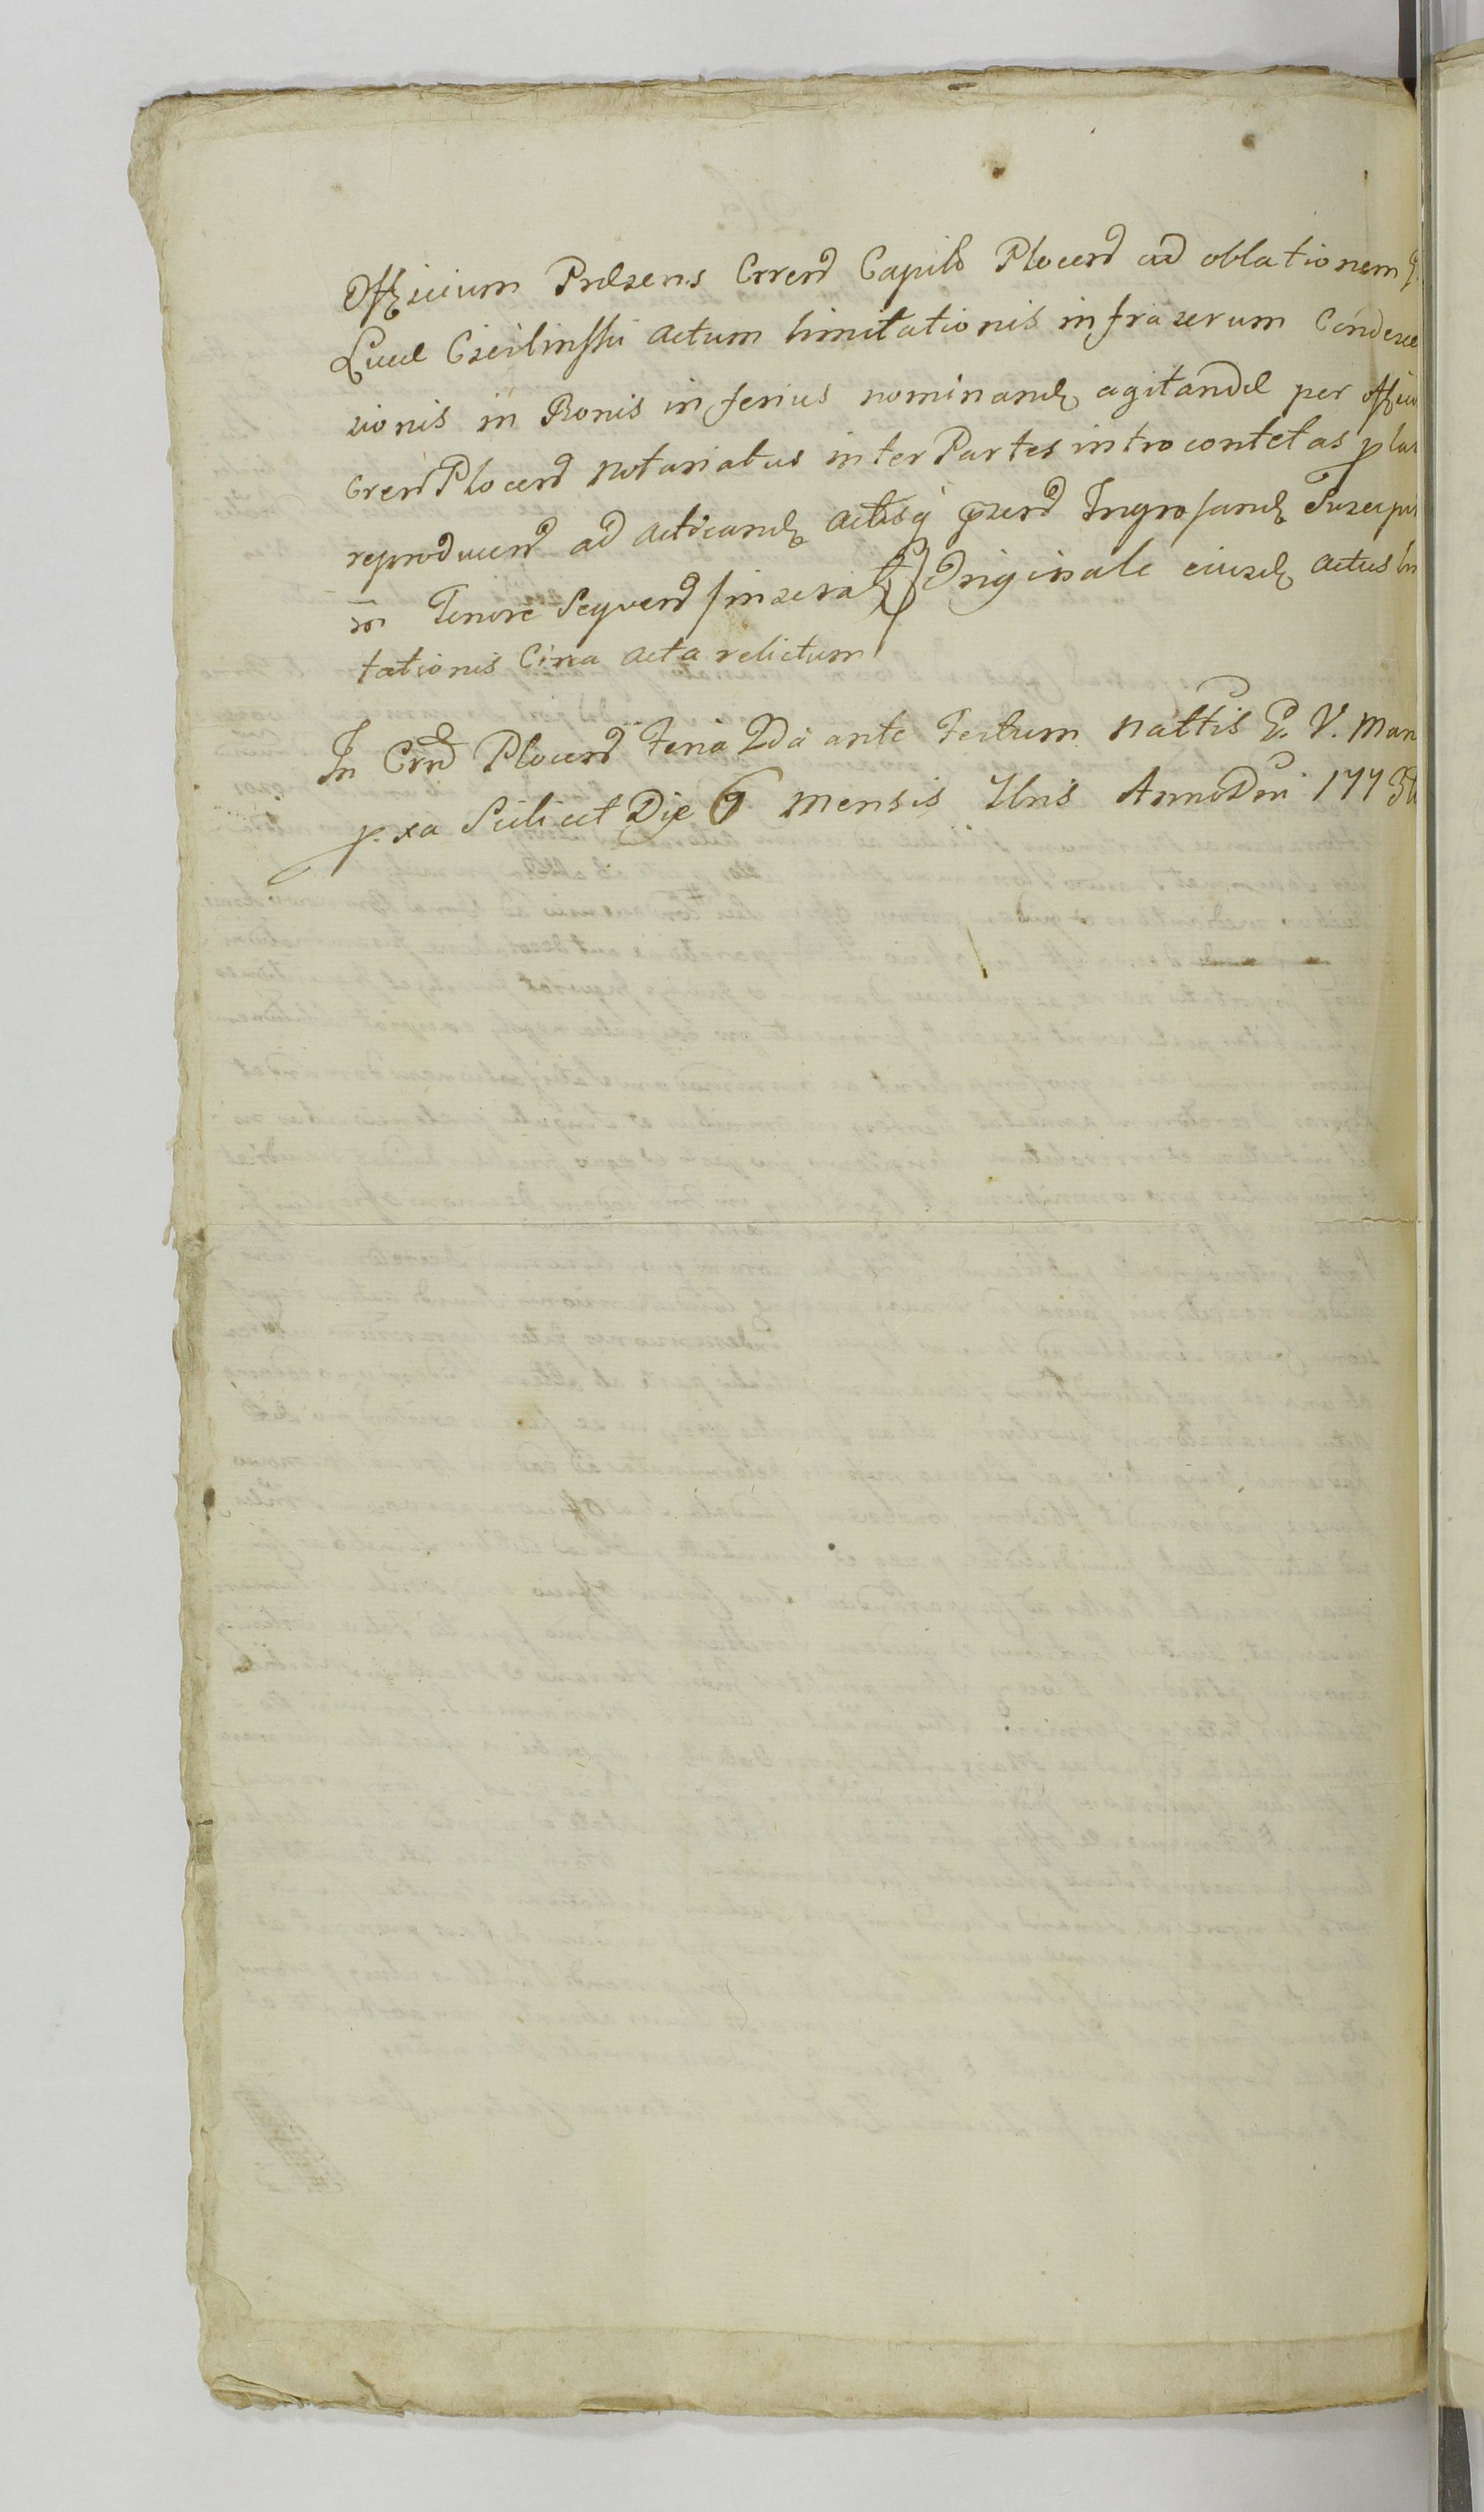 Officium Præsens Crrens Capitis Plocens ad oblationem G.
Lucæ Cieślinski actum limitationis infrascrum Condesce
sionis in Bonis inferius nominand agitandæ per Officiu
Cren Plocens notariatus inter Partes introcontctas p
reproducens ad acticand actisq pnsens Ingrosand Suscepit
Tenore Sequens /inserat/ Originale eiusd actus li
tationis Circa acta relictum
In Crd Plocens Feria 2da ante Festum Nattis B. V. Mar
p. xa Scilicet Die 6 mensis 7bris Anno Dni 177